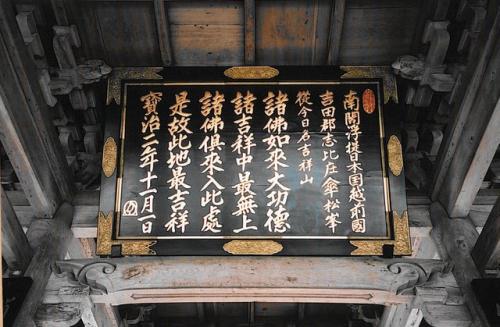 南閻浮提日本国越前國
吉田郡志比庄傘松峯
從今日名吉祥山
諸佛如來大功德
諸吉祥中最無上
諸佛俱來入此處
是故此地最吉祥
寶治二年十一月一日